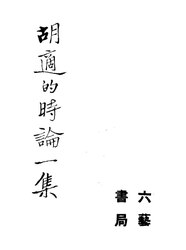 胡適的時論一集
六藝
書局